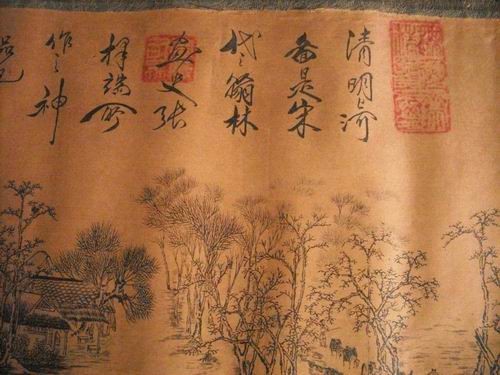 清明上河
是宋
代翰林
畫史張
擇端所
作之神
品也